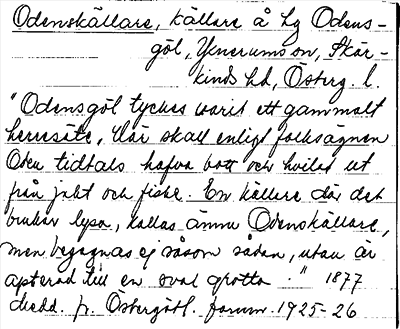 Odenskällare, källare å Lg Odens-
göl, Yxnerums sn, Skär-
kinds hd, Österg. l.
"Odensgöl tyckes varit ett gammalt
herresäte, där skall enligt folksägnen
Oden tidtals hafva bott och hvilat ut
från jakt och fiske. En källare där det
brukar lysa, kallas ännu Odenskällare,
men begagnas ej såsom sådan, utan är
apterad till en sval grotta." 1877
Medd. fr. Östergötl. fornm. 1925-26